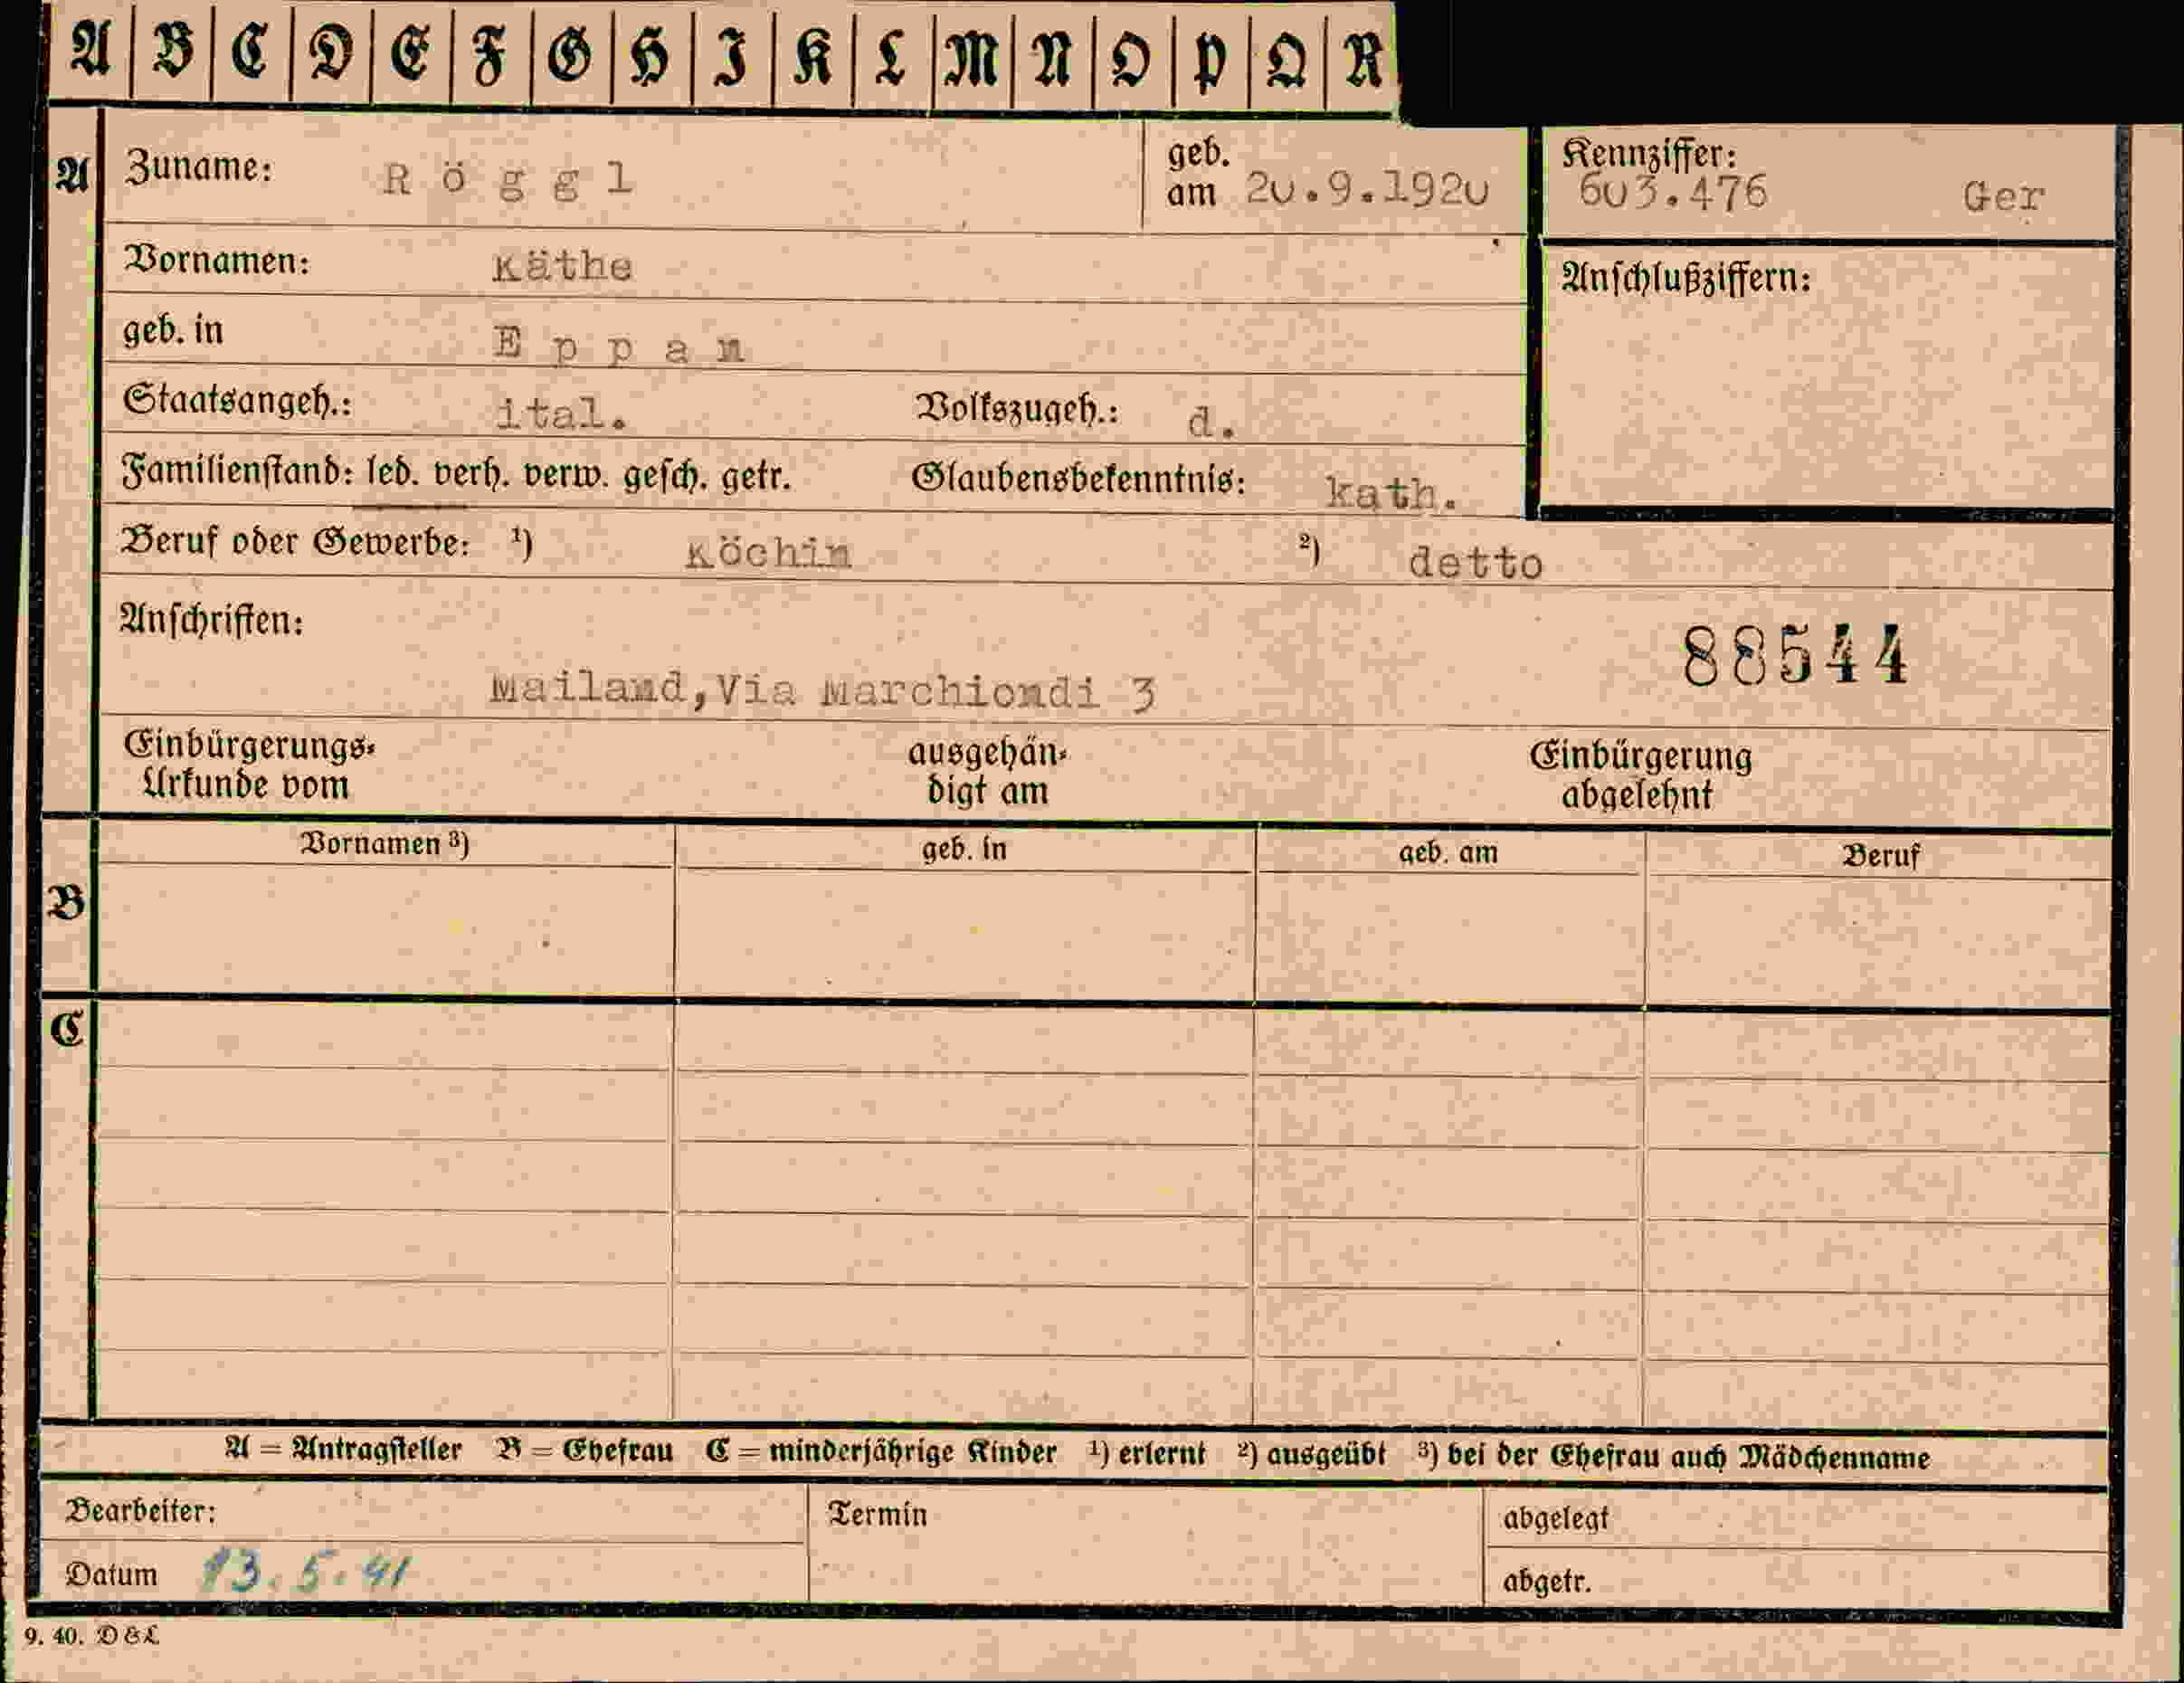 A B C D E F G H I K L M N O P Q R
A Zuname: Röggl geb. am 20.9.1920 Kennziffer: 603.476 Ger
Vornamen: Käthe Anschlußziffern:
geb. in Eppan
Staatsangeh.: ital. Volkszugeh.: d.
Familienstand: led. verh. verw. gesch. getr. Glaubensbekenntnis: kath.
Beruf oder Gewerbe: ¹) Köchin ²) detto
Anschriften: 88544
Mailand,Via Marchiondi 3
Einbürgerungs- ausgehän- Einbürgerung
Urkunde vom digt am abgelehnt
Vornamen ³) geb. in geb. am Beruf
B
C
A = Antragsteller B = Ehefrau C = minderjährige Kinder ¹) erlernt ²) ausgeübt ³) bei der Ehefrau auch Mädchenname
Bearbeiter: Termin abgelegt
Datum 13.5.41 abgetr.
9. 40. D & L